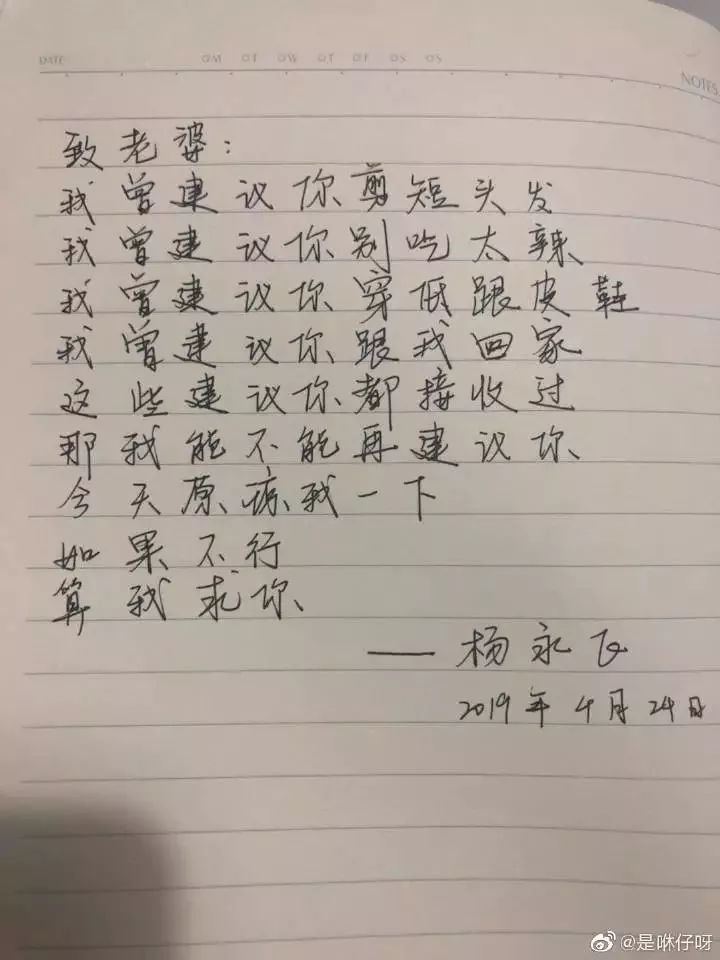 DATE OM OT OW OT OF OS OS
NOTES
致老婆：
我曾建议你剪短头发
我曾建议你别吃太辣
我曾建议你穿低跟皮鞋
我曾建议你跟我回家
这些建议你都接收过
那我能不能再建议你
今天原谅我一下
如果不行
算我求你
——杨永飞
2019年4月24日
@是咻仔呀